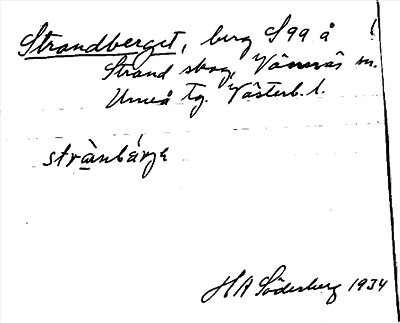 Strandberget, berg S 99 å
Strand skog, Vännäs sn.
Umeå tg. Västerb. l.
strànbárje
HA Söderberg 1934